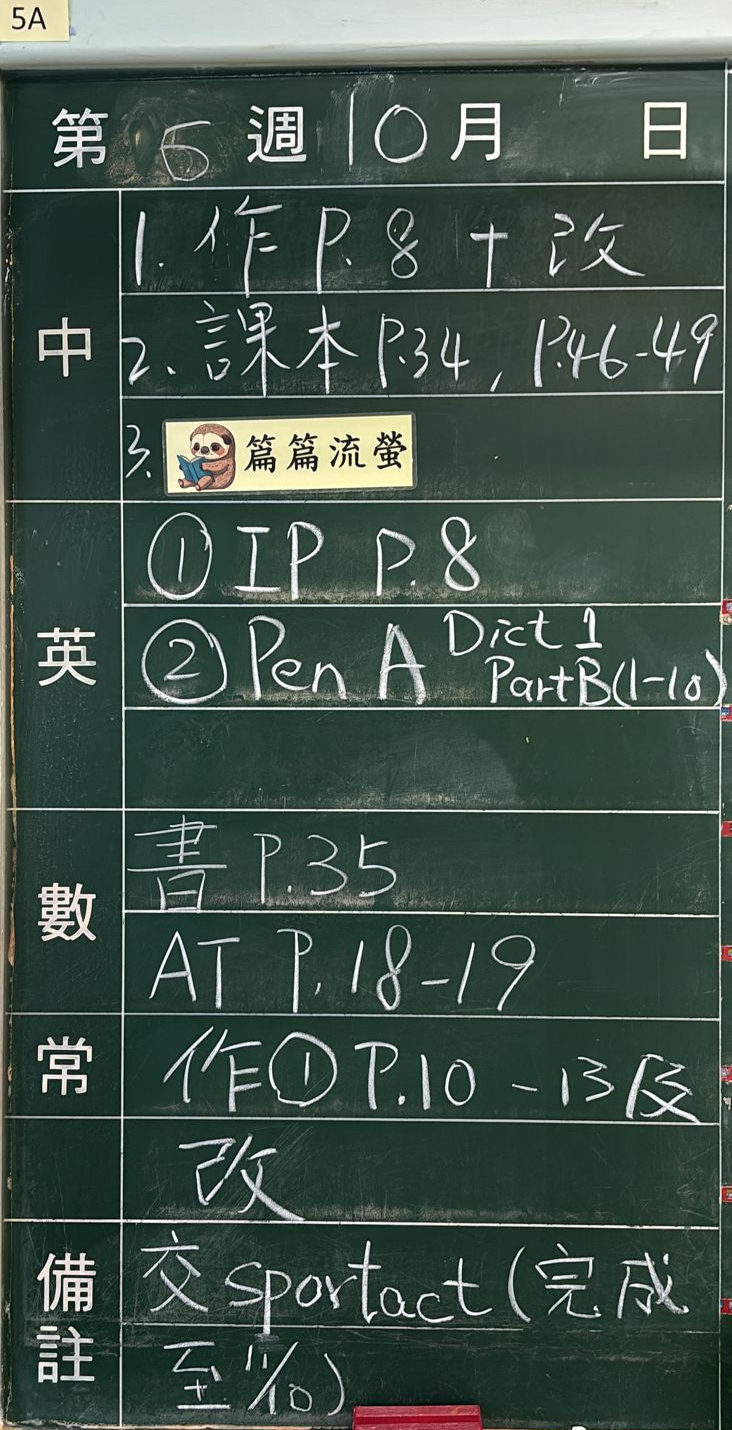 5A
第 5 週 10 月 日
中
1. 作 P. 8 + 改
2. 課本 P.34, P.46-49
3. 篇篇流螢
英
① IP P. 8
② Pen A Dict 1
Part B (1-10)
數
書 P.35
AT P. 18-19
常
作① P.10 - 13 及
改
備註
交 sportact (完成
至 11/10)